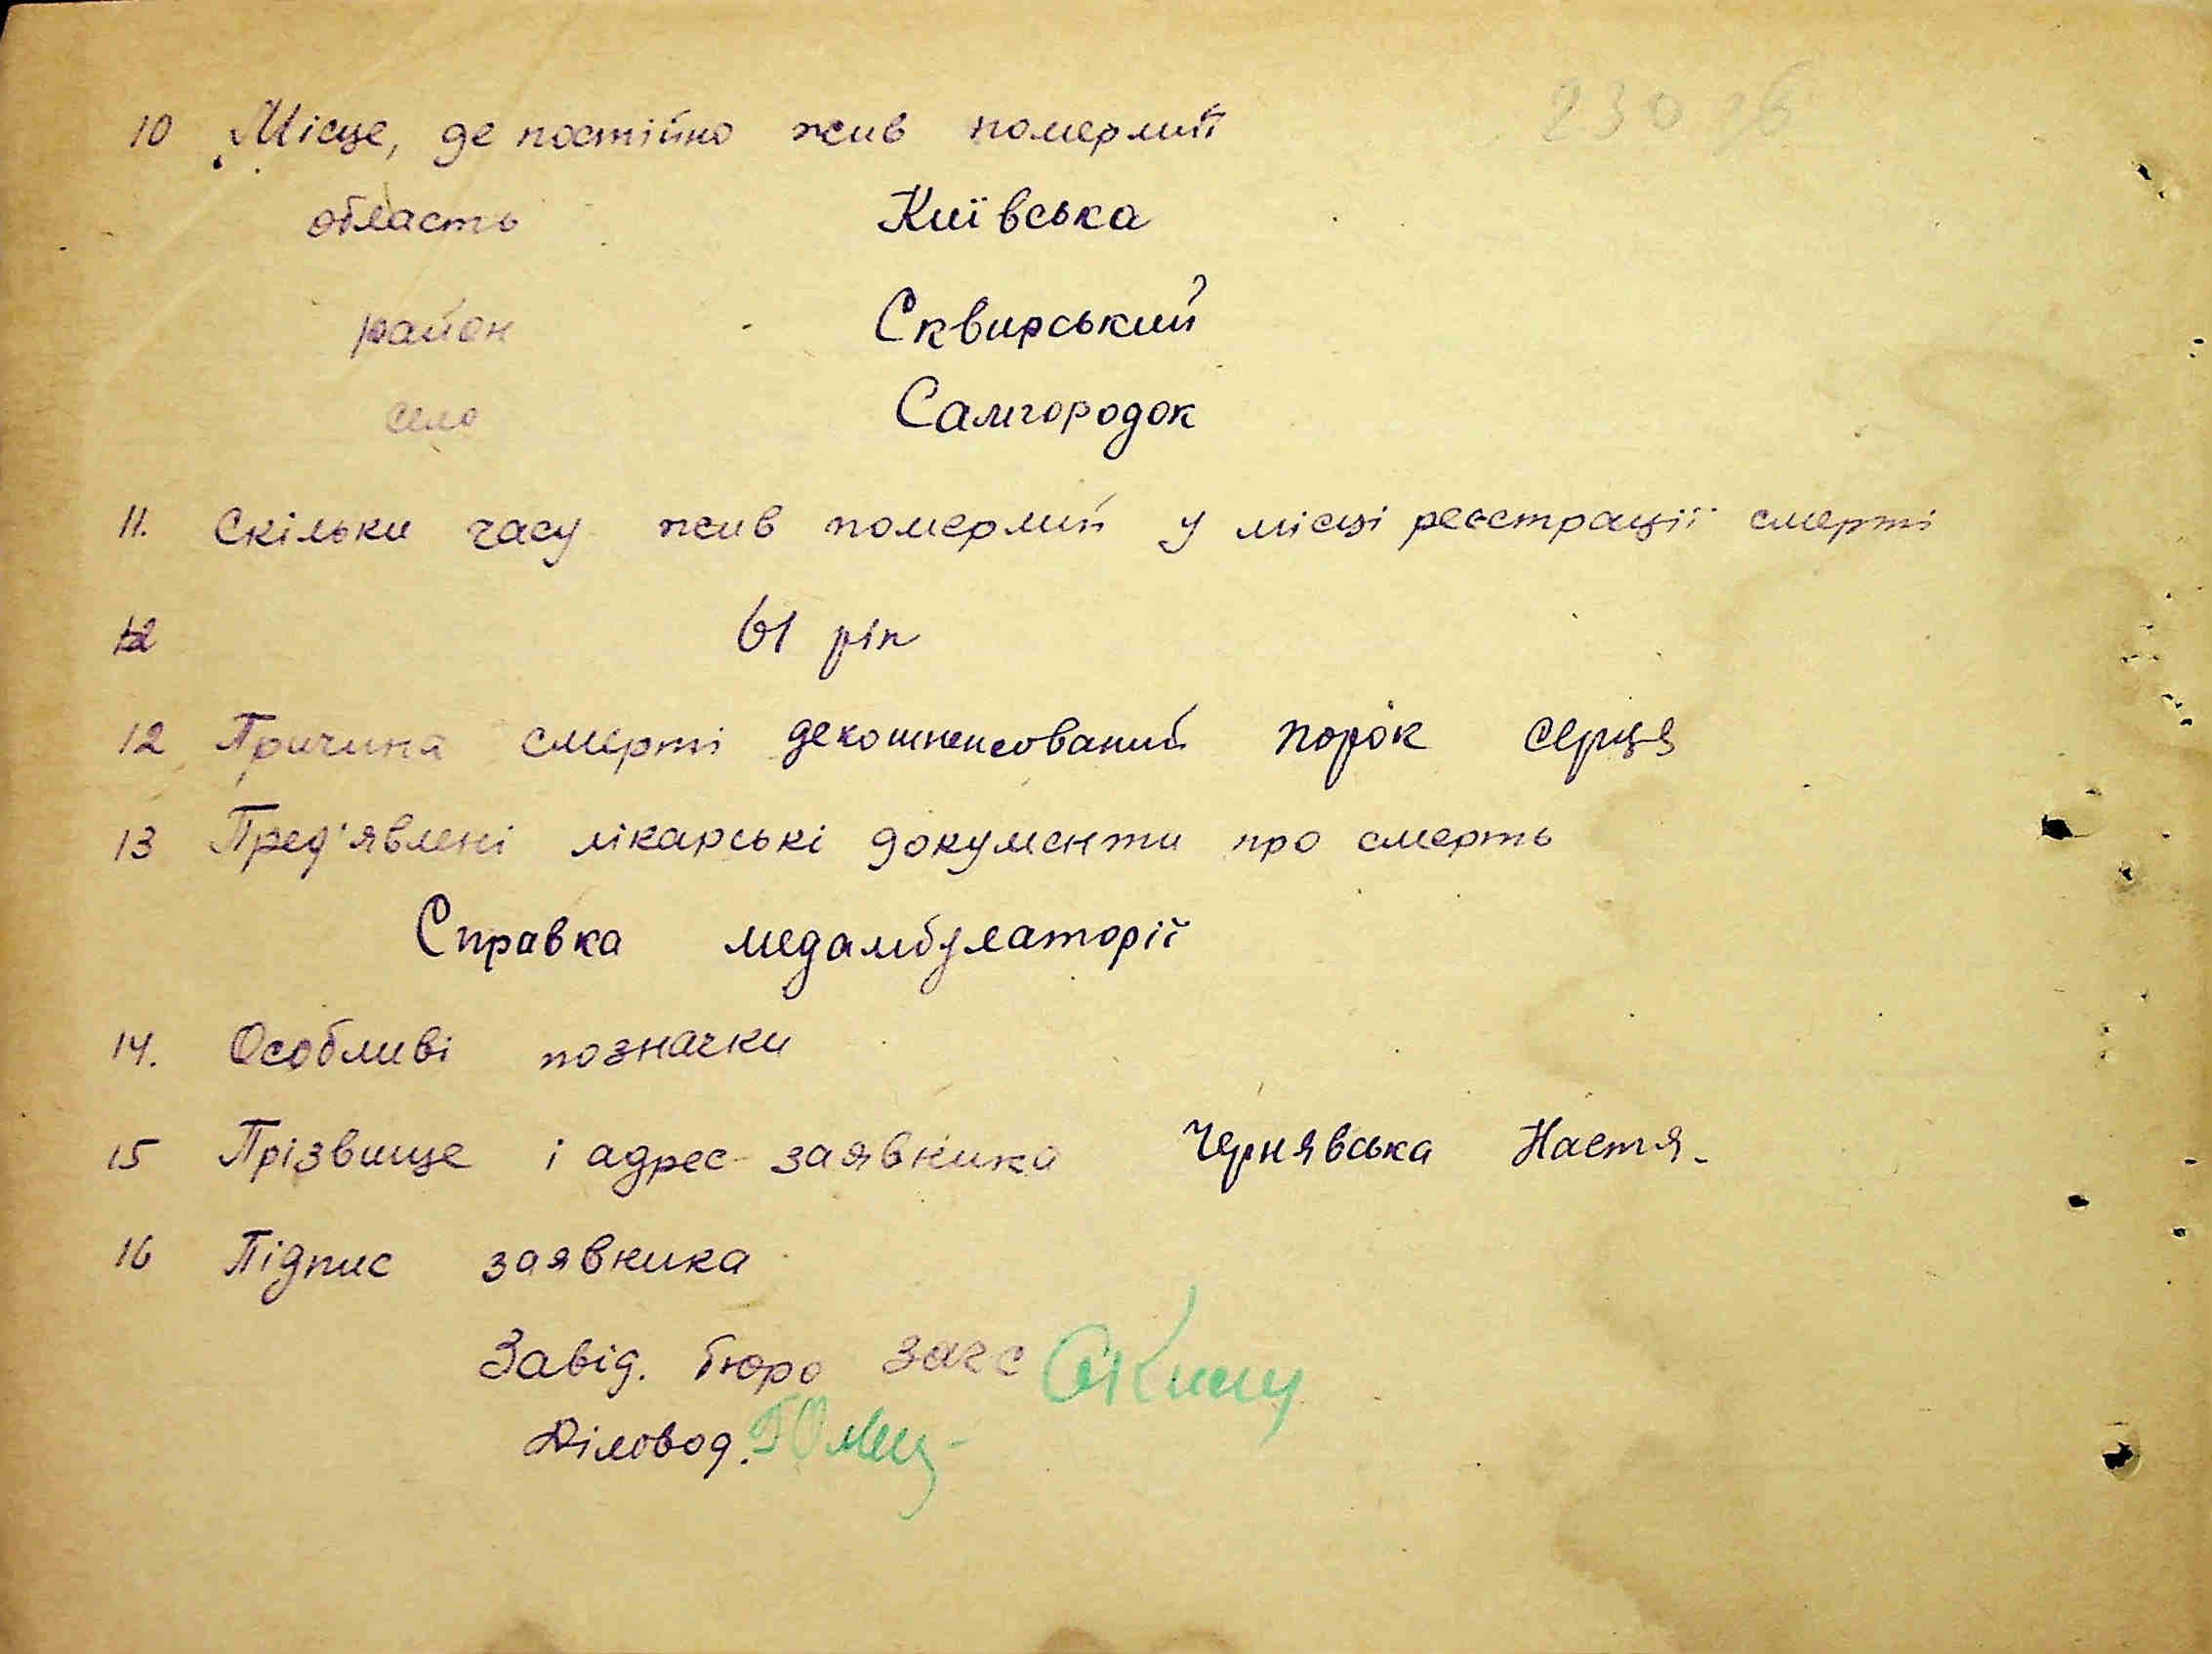 230 зв
10 Місце, де постійно жив померлий
область Київська
район Сквирський
село Самгородок
11. Скільки часу жив померлий у місці реєстрації смерті
12 61 рік
12 Причина смерті декомпенсований порок серця
13 Пред'явлені лікарські документи про смерть
Справка медамбулаторії
14. Особливі позначки
15 Прізвище і адрес заявника Чернявська Настя.
16 Підпис заявника
Завід. бюро загс
Діловод.